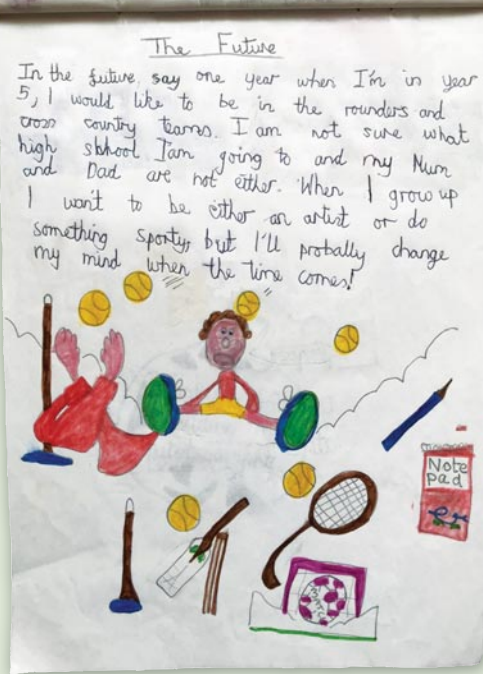 The Future
In the future, say one year when I'm in year
5, I would like to be in the rounders and
cross country teams. I am not sure what
high skhool I'am going to and my Mum
and Dad are not either. When I grow up
I want to be either an artist or do
something sporty, but I'll probally change
my mind when the time comes!
Note
pad